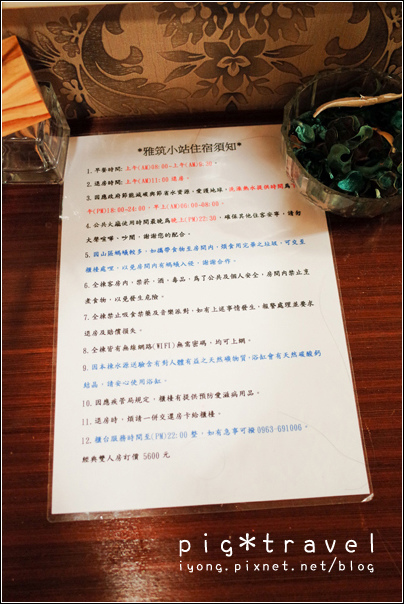 *雅筑小站住宿須知*
1. 早餐時間: 上午(AM)08:00~上午(AM)9:30。
2. 退房時間: 上午(AM)11:00 退房。
3. 因應政府節能減碳與節省水資源、愛護地球，洗澡熱水提供時間為
午(PM)18:00~24:00，早上(AM)06:00~08:00。
4. 公共大廳使用時間最晚為晚上(PM)22:30，確保其他住客安寧，請勿
大聲喧嘩、吵鬧，謝謝您的配合。
5. 因山區螞蟻較多，如攜帶食物至房間內，請食用完畢之垃圾，可交至
櫃檯處理，以免房間內有螞蟻入侵，謝謝合作。
6. 全棟客房內，禁菸，酒，毒品，為了公共及個人安全，房間內禁止烹
煮食物，以免發生危險。
7. 全棟禁止吸食禁藥及音樂派對，如有上述事情發生，報警處理並要求
退房及賠償損失。
8. 全棟皆有無線網路(WIFI)無需密碼，均可上網。
9. 因本棟水源送驗含有對人體有益之天然礦物質，浴缸會有天然碳酸鈣
結晶，請安心使用浴缸。
10. 因應疾管局規定，櫃檯有提供預防愛滋病用品。
11. 退房時，煩請一併交還房卡給櫃檯。
12. 櫃台服務時間至(PM)22:00 整，如有急事可撥 0963-691006。
經典雙人房訂價 5600 元
pig*travel
iyong.pixnet.net/blog